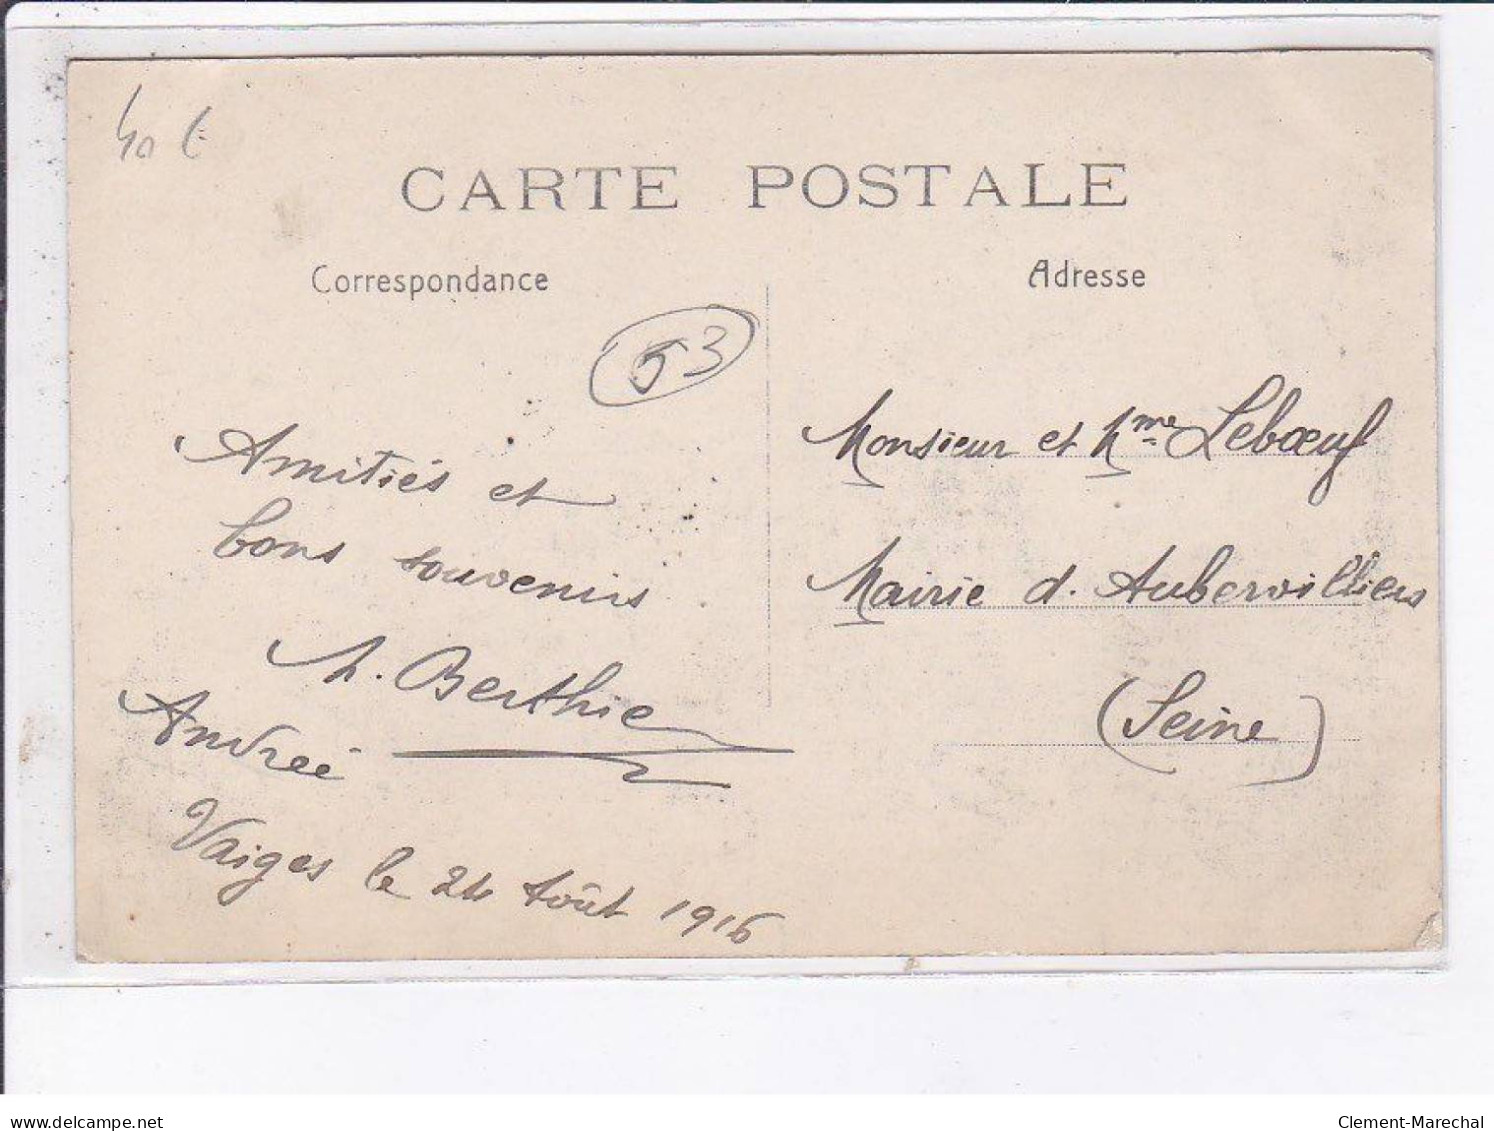 40 €
CARTE POSTALE
Correspondance
Adresse
53
Amitiés et
bons souvenirs
M. Berthie
Andrée
Vaiges le 24 Août 1916
Monsieur et Mme Lebœuf
Mairie d'Aubervilliers
(Seine)
www.delcampe.net
Clement-Marechal